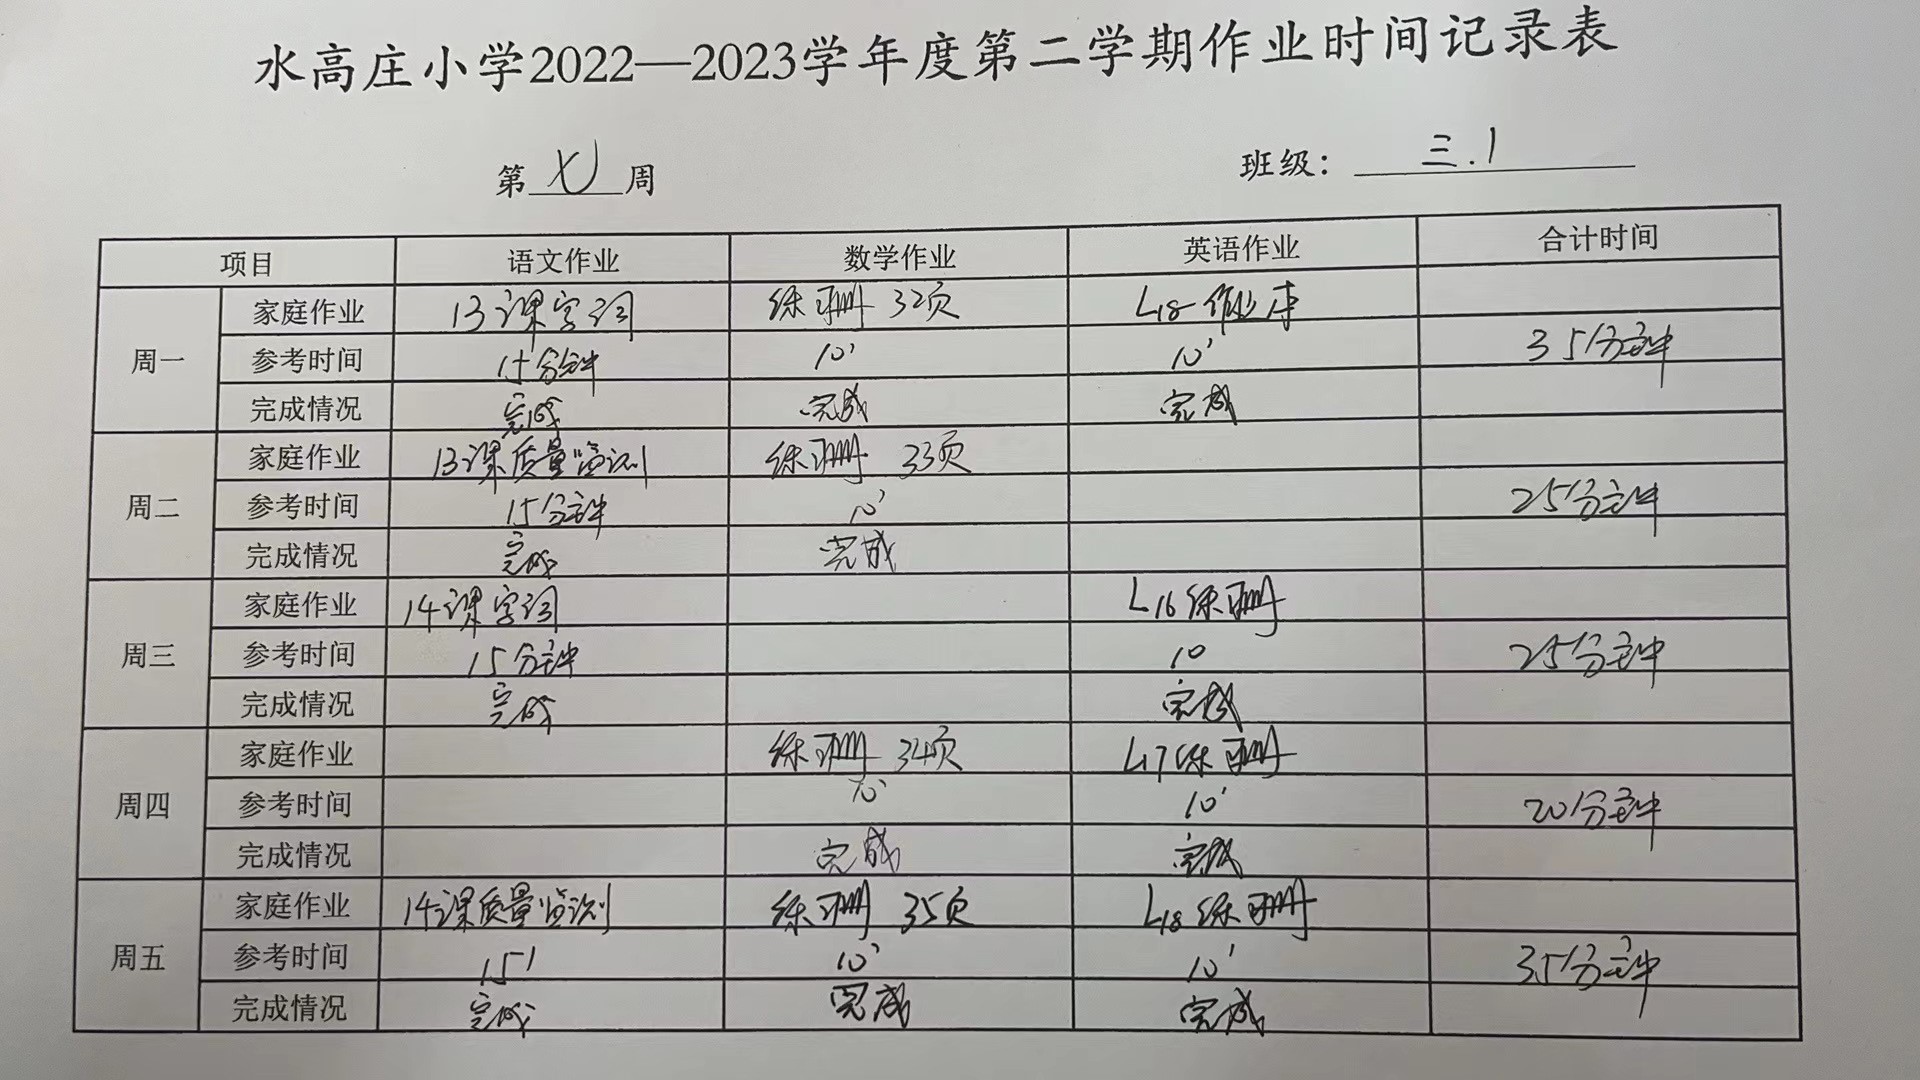 水高庄小学2022—2023学年度第二学期作业时间记录表
第七周 班级：三.1
项目 语文作业 数学作业 英语作业 合计时间
周一 家庭作业 13课字词 练习册 32页 L18作业本
参考时间 15分钟 10' 10' 35分钟
完成情况 完成 完成 完成
周二 家庭作业 13课质量监测 练习册 33页
参考时间 15分钟 10' 25分钟
完成情况 完成 完成
周三 家庭作业 14课字词 L16练习册
参考时间 15分钟 10 25分钟
完成情况 完成 完成
周四 家庭作业 练习册 34页 L17练习册
参考时间 10' 10' 20分钟
完成情况 完成 完成
周五 家庭作业 14课质量监测 练习册 35页 L18练习册
参考时间 15' 10' 10' 35分钟
完成情况 完成 完成 完成